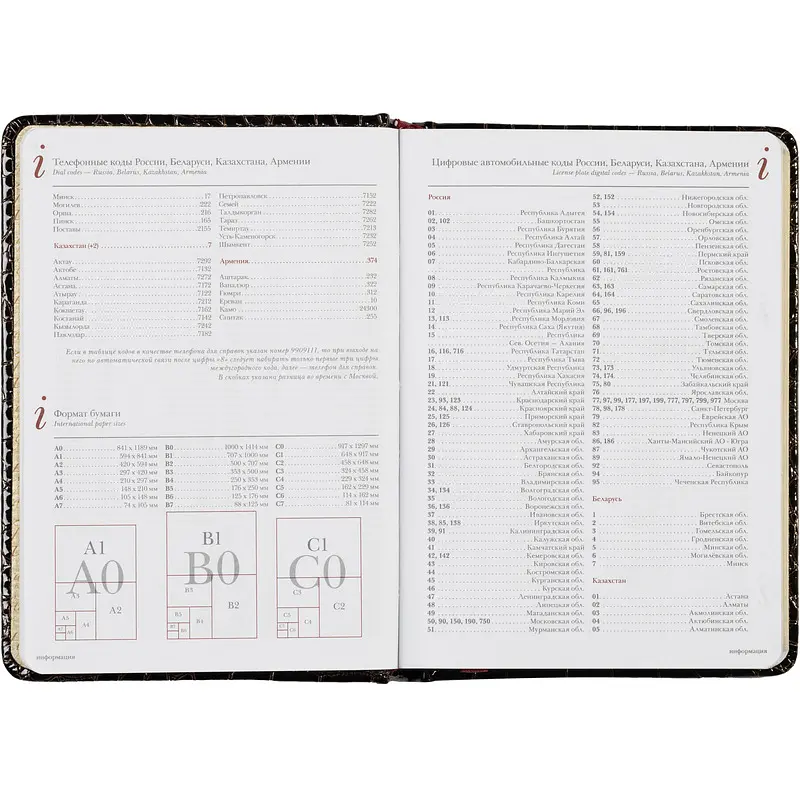 i
Телефонные коды России, Беларуси, Казахстана, Армении
Dial codes — Russia, Belarus, Kazakhstan, Armenia
Минск 17
Могилев 222
Орша 216
Пинск 165
Поставы 2155
Казахстан (+2) 7
Актау 7292
Актобе 7132
Алматы 7272
Астана 7172
Атырау 7122
Караганда 7212
Кокшетау 7162
Костанай 7142
Кызылорда 7242
Павлодар 7182
Петропавловск 7152
Семей 7222
Талдыкорган 7282
Тараз 7262
Темиртау 7213
Усть-Каменогорск 7232
Шымкент 7252
Армения 374
Аштарак 232
Ванадзор 322
Гюмри 312
Ереван 10
Камо 24300
Спитак 255
Если в таблице кодов в качестве телефона для справок указан номер 9909111, то при выходе на
него по автоматической связи после цифры «8» следует набирать только первые три цифры
междугородного кода, далее — телефон для справок.
В скобках указана разница во времени с Москвой.
i
Формат бумаги
International paper sizes
A0 841 x 1189 мм
A1 594 x 841 мм
A2 420 x 594 мм
A3 297 x 420 мм
A4 210 x 297 мм
A5 148 x 210 мм
A6 105 x 148 мм
A7 74 x 105 мм
B0 1000 x 1414 мм
B1 707 x 1000 мм
B2 500 x 707 мм
B3 353 x 500 мм
B4 250 x 353 мм
B5 176 x 250 мм
B6 125 x 176 мм
B7 88 x 125 мм
C0 917 x 1297 мм
C1 648 x 917 мм
C2 458 x 648 мм
C3 324 x 458 мм
C4 229 x 324 мм
C5 162 x 229 мм
C6 114 x 162 мм
C7 81 x 114 мм
A1
A0
A3
A2
A5
A4
B1
B0
B3
B2
B5
B4
C1
C0
C3
C2
C5
C4
информация
Цифровые автомобильные коды России, Беларуси, Казахстана, Армении
License plate digital codes — Russia, Belarus, Kazakhstan, Armenia
i
Россия
01 Республика Адыгея
02, 102 Башкортостан
03 Республика Бурятия
04 Республика Алтай
05 Республика Дагестан
06 Республика Ингушетия
07 Кабардино-Балкарская
Республика
08 Республика Калмыкия
09 Республика Карачаево-Черкегия
10 Республика Карелия
11 Республика Коми
12 Республика Марий Эл
13, 113 Республика Мордовия
14 Республика Саха (Якутия)
15 Республика
Сев. Осетия — Алания
16, 116, 716 Республика Татарстан
17 Республика Тыва
18 Удмуртская Республика
19 Республика Хакасия
21, 121 Чувашская Республика
22 Алтайский край
23, 93, 123 Краснодарский край
24, 84, 88, 124 Красноярский край
25, 125 Приморский край
26, 126 Ставропольский край
27 Хабаровский край
28 Амурская обл.
29 Архангельская обл.
30 Астраханская обл.
31 Белгородская обл.
32 Брянская обл.
33 Владимирская обл.
34, 134 Волгоградская обл.
35 Вологодская обл.
36, 136 Воронежская обл.
37 Ивановская обл.
38, 85, 138 Иркутская обл.
39, 91 Калининградская обл.
40 Калужская обл.
41 Камчатский край
42, 142 Кемеровская обл.
43 Кировская обл.
44 Костромская обл.
45 Курганская обл.
46 Курская обл.
47 Ленинградская обл.
48 Липецкая обл.
49 Магаданская обл.
50, 90, 150, 190, 750 Московская обл.
51 Мурманская обл.
52, 152 Нижегородская обл.
53 Новгородская обл.
54, 154 Новосибирская обл.
55 Омская обл.
56 Оренбургская обл.
57 Орловская обл.
58 Пензенская обл.
59, 81, 159 Пермский край
60 Псковская обл.
61, 161, 761 Ростовская обл.
62 Рязанская обл.
63, 163 Самарская обл.
64, 164 Саратовская обл.
65 Сахалинская обл.
66, 96, 196 Свердловская обл.
67 Смоленская обл.
68 Тамбовская обл.
69 Тверская обл.
70 Томская обл.
71 Тульская обл.
72 Тюменская обл.
73, 173 Ульяновская обл.
74, 174 Челябинская обл.
75, 80 Забайкальский край
76 Ярославская обл.
77, 97, 99, 177, 197, 199, 777, 797, 799, 977 Москва
78, 98, 178 Санкт-Петербург
79 Еврейская АО
82 Республика Крым
83 Ненецкий АО
86, 186 Ханты-Мансийский АО - Югра
87 Чукотский АО
89 Ямало-Ненецкий АО
92 Севастополь
94 Байконур
95 Чеченская Республика
Беларусь
1 Брестская обл.
2 Витебская обл.
3 Гомельская обл.
4 Гродненская обл.
5 Минская обл.
6 Могилёвская обл.
7 Минск
Казахстан
01 Астана
02 Алматы
03 Акмолинская обл.
04 Актюбинская обл.
05 Алматинская обл.
информация